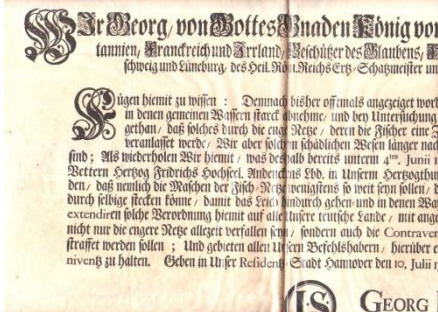 Wir Georg, von Gottes Gnaden König von
tannien, Franckreich und Irrland, Beschützer des Glaubens,
schweig und Lüneburg, des Heil. Röm. Reichs Ertz-Schatzmeister un
Fügen hiemit zu wissen : Demnach bisher offtmals angezeiget word
in denen gemeinen Wassern starck abnehme, und bey Untersuchung
gethan, daß solches durch die enge Netze, deren die Fischer eine Z
veranlasset werde, Wir aber solchem schädlichen Wesen länger nach
sind ; Als wiederholen Wir hiemit, was deshalb bereits unterm 4ten. Junii
Vettern Hertzog Fridrichs Hochseel. Andenckens Lbd. in Unserm Hertzogthu
den, daß nemlich die Maschen der Fisch-Netze wenigstens so weit seyn sollen, d
durch selbige stecken könne, damit das Leich hindurch gehen, und in denen Wa
extendiren solche Verordnung hiemit auf alle Unsere teutsche Lande, mit ange
nicht nur die engere Netze allezeit verfallen seyn, sondern auch die Contraven
straffet werden sollen ; Und gebieten allen Unsern Befehlshabern, hierüber e
niventz zu halten. Geben in Unser Residentz-Stadt Hannover den 10. Julii
(L.S. GEORG